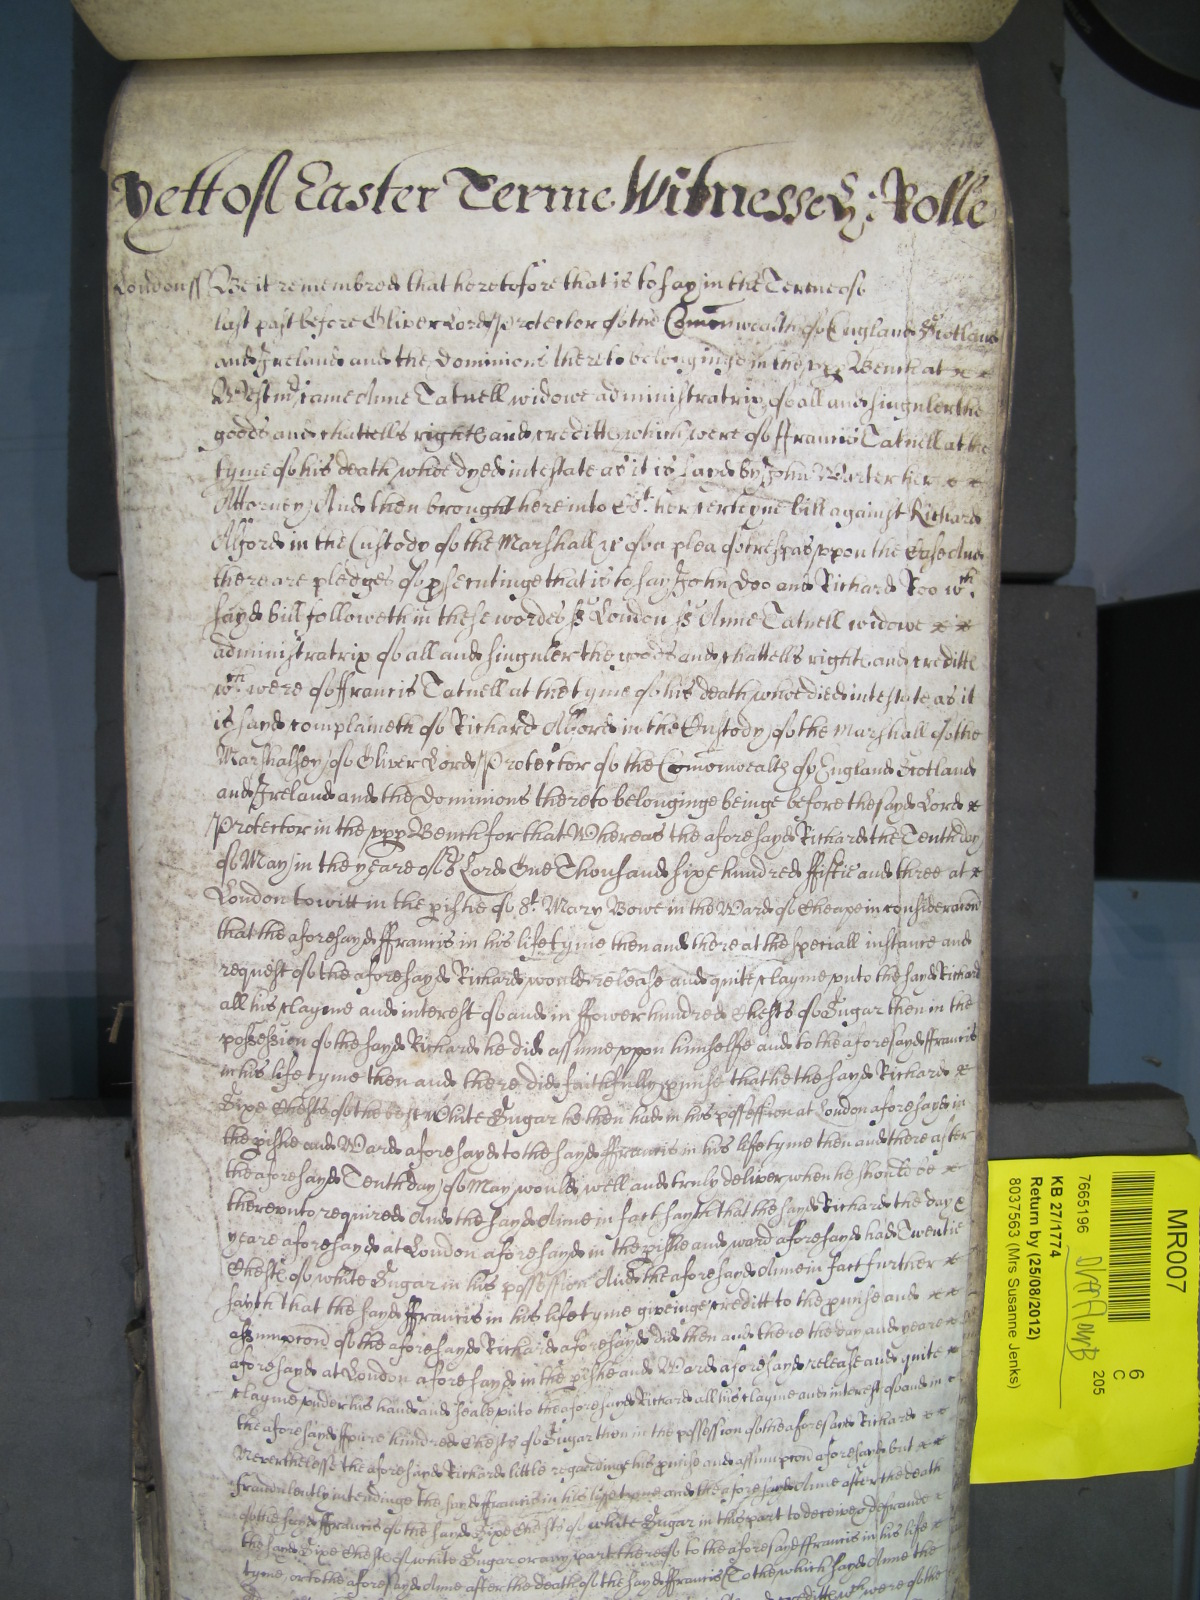 Yett of Easter Terme Witnesseth: Rolle
London ss Be it remembred that heretofore that is to say in the Terme of
last past before Oliver Lord Protector of the Comonwealth of England Scotland
and Ireland and the Dominions thereto belonginge in the upp Bench at
Westmr came Anne Tatnell widowe administratrix of all and singuler the
goods and chattells rights and creditts which were of ffrancis Tatnell at the
tyme of his death whoe dyed intestate as it is sayd by John Warter her
Attorney And then brought here into Ct her certeyne bill against Richard
Alford in the Custody of the Marshall &c of a plea of trespas uppon the Case And
there are pledges of psecutinge that is to say John Doo and Richard Roo wch
sayd bill followeth in these wordes ss London ss Anne Tatnell widowe
administratrix of all and singuler the goods and chattells rights and creditts
wch were of ffrancis Tatnell at the tyme of his death whoe died intestate as it
is sayd complaineth of Richard Alford in the Custody of the Marshall of the
Marshalsey of Oliver Lord Protector of the Comonwealth of England Scotland
and Ireland and the Dominions thereto belonginge beinge before the sayd Lord
Protector in the upp Bench for that Whereas the aforesayd Richard the Tenth day
of May in the yeare of or Lord One Thousand sixe hundred fiftie and three at
London to witt in the pishe of St Mary Bowe in the Ward of Cheape in consideracon
that the aforesayd ffrancis in his life tyme then and there at the speciall instance and
request of the aforesayd Richard would release and quite clayme unto the sayd Richard
all his clayme and interest of and in ffower hundred Chests of Sugar then in the
possession of the sayd Richard he did assume uppon himselfe and to the aforesayd ffrancis
in his life tyme then and there did faithfully pmise that he the sayd Richard
Sixe Chests of the best White Sugar he then had in his possession at London aforesayd in
the pishe and Ward aforesayd to the sayd ffrancis in his life tyme then and there after
the aforesayd Tenth day of May would well and truly deliver when he should be
thereunto required And the sayd Anne in fact sayth that the sayd Richard the day &
yeare aforesayd at London aforesayd in the pishe and ward aforesayd had Twentie
Chests of white Sugar in his possession And the aforesayd Anne in fact further
sayth that the sayd ffrancis in his life tyme giveinge creditt to the pmise and
assumpcon of the aforesayd Richard aforesayd did then and there the day and yeare
aforesayd at London aforesayd in the pishe and Ward aforesayd release and quite
clayme under his hand and seale unto the aforesayd Richard all his clayme and interest of and in
the aforesayd ffoure hundred Chests of Sugar then in the possession of the aforesayd Richard
Neverthelesse the aforesayd Richard little regardinge his pmise and assumpcon aforesayd but
fraudulently intendinge the sayd ffrancis in his life tyme and the aforesayd Anne after the death
of the sayd ffrancis of the sayd Sixe Chests of white Sugar in this part to deceive & defraude
the sayd Sixe Chests of white Sugar or any part thereof to the aforesayd ffrancis in his life
tyme, or to the aforesayd Anne after the death of the sayd ffrancis (To the which sayd Anne the
MR007
6
C
205
7665196
KB 27/1774
Return by (25/08/2012)
8037563 (Mrs Susanne Jenks)